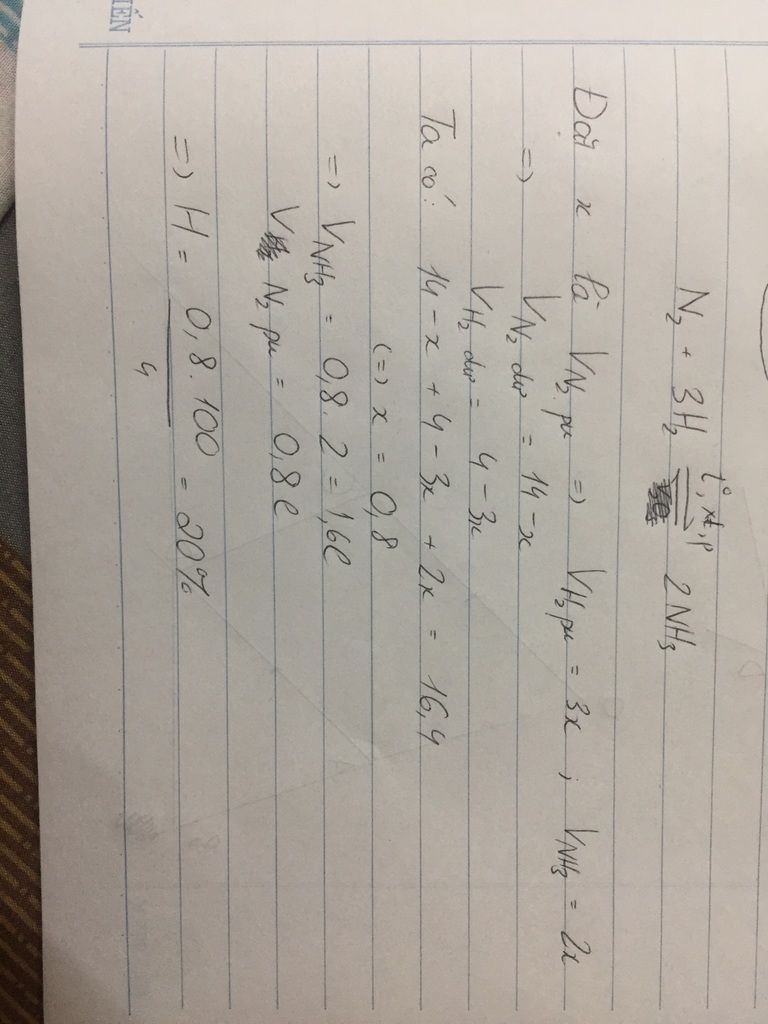 N₂ + 3H₂ ⇌ 2NH₃
t°, xt, p
Đặt x là V N₂ pư => V H₂ pư = 3x ; V NH₃ = 2x
=> V N₂ dư = 14 - x
V H₂ dư = 4 - 3x
Ta có: 14 - x + 4 - 3x + 2x = 16,4
(=) x = 0,8
=> V NH₃ = 0,8 . 2 = 1,6l
V N₂ pư = 0,8l
=> H = 0,8 . 100 = 20%
4
ẾN